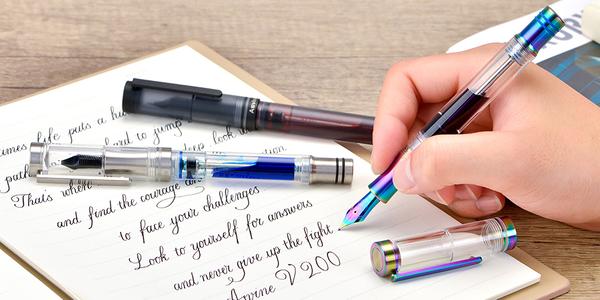 life puts a
hard to jump
deep look
That's when
and find the courage
to face your challenges
Look to yourself for answers
and never give up the fight
V200